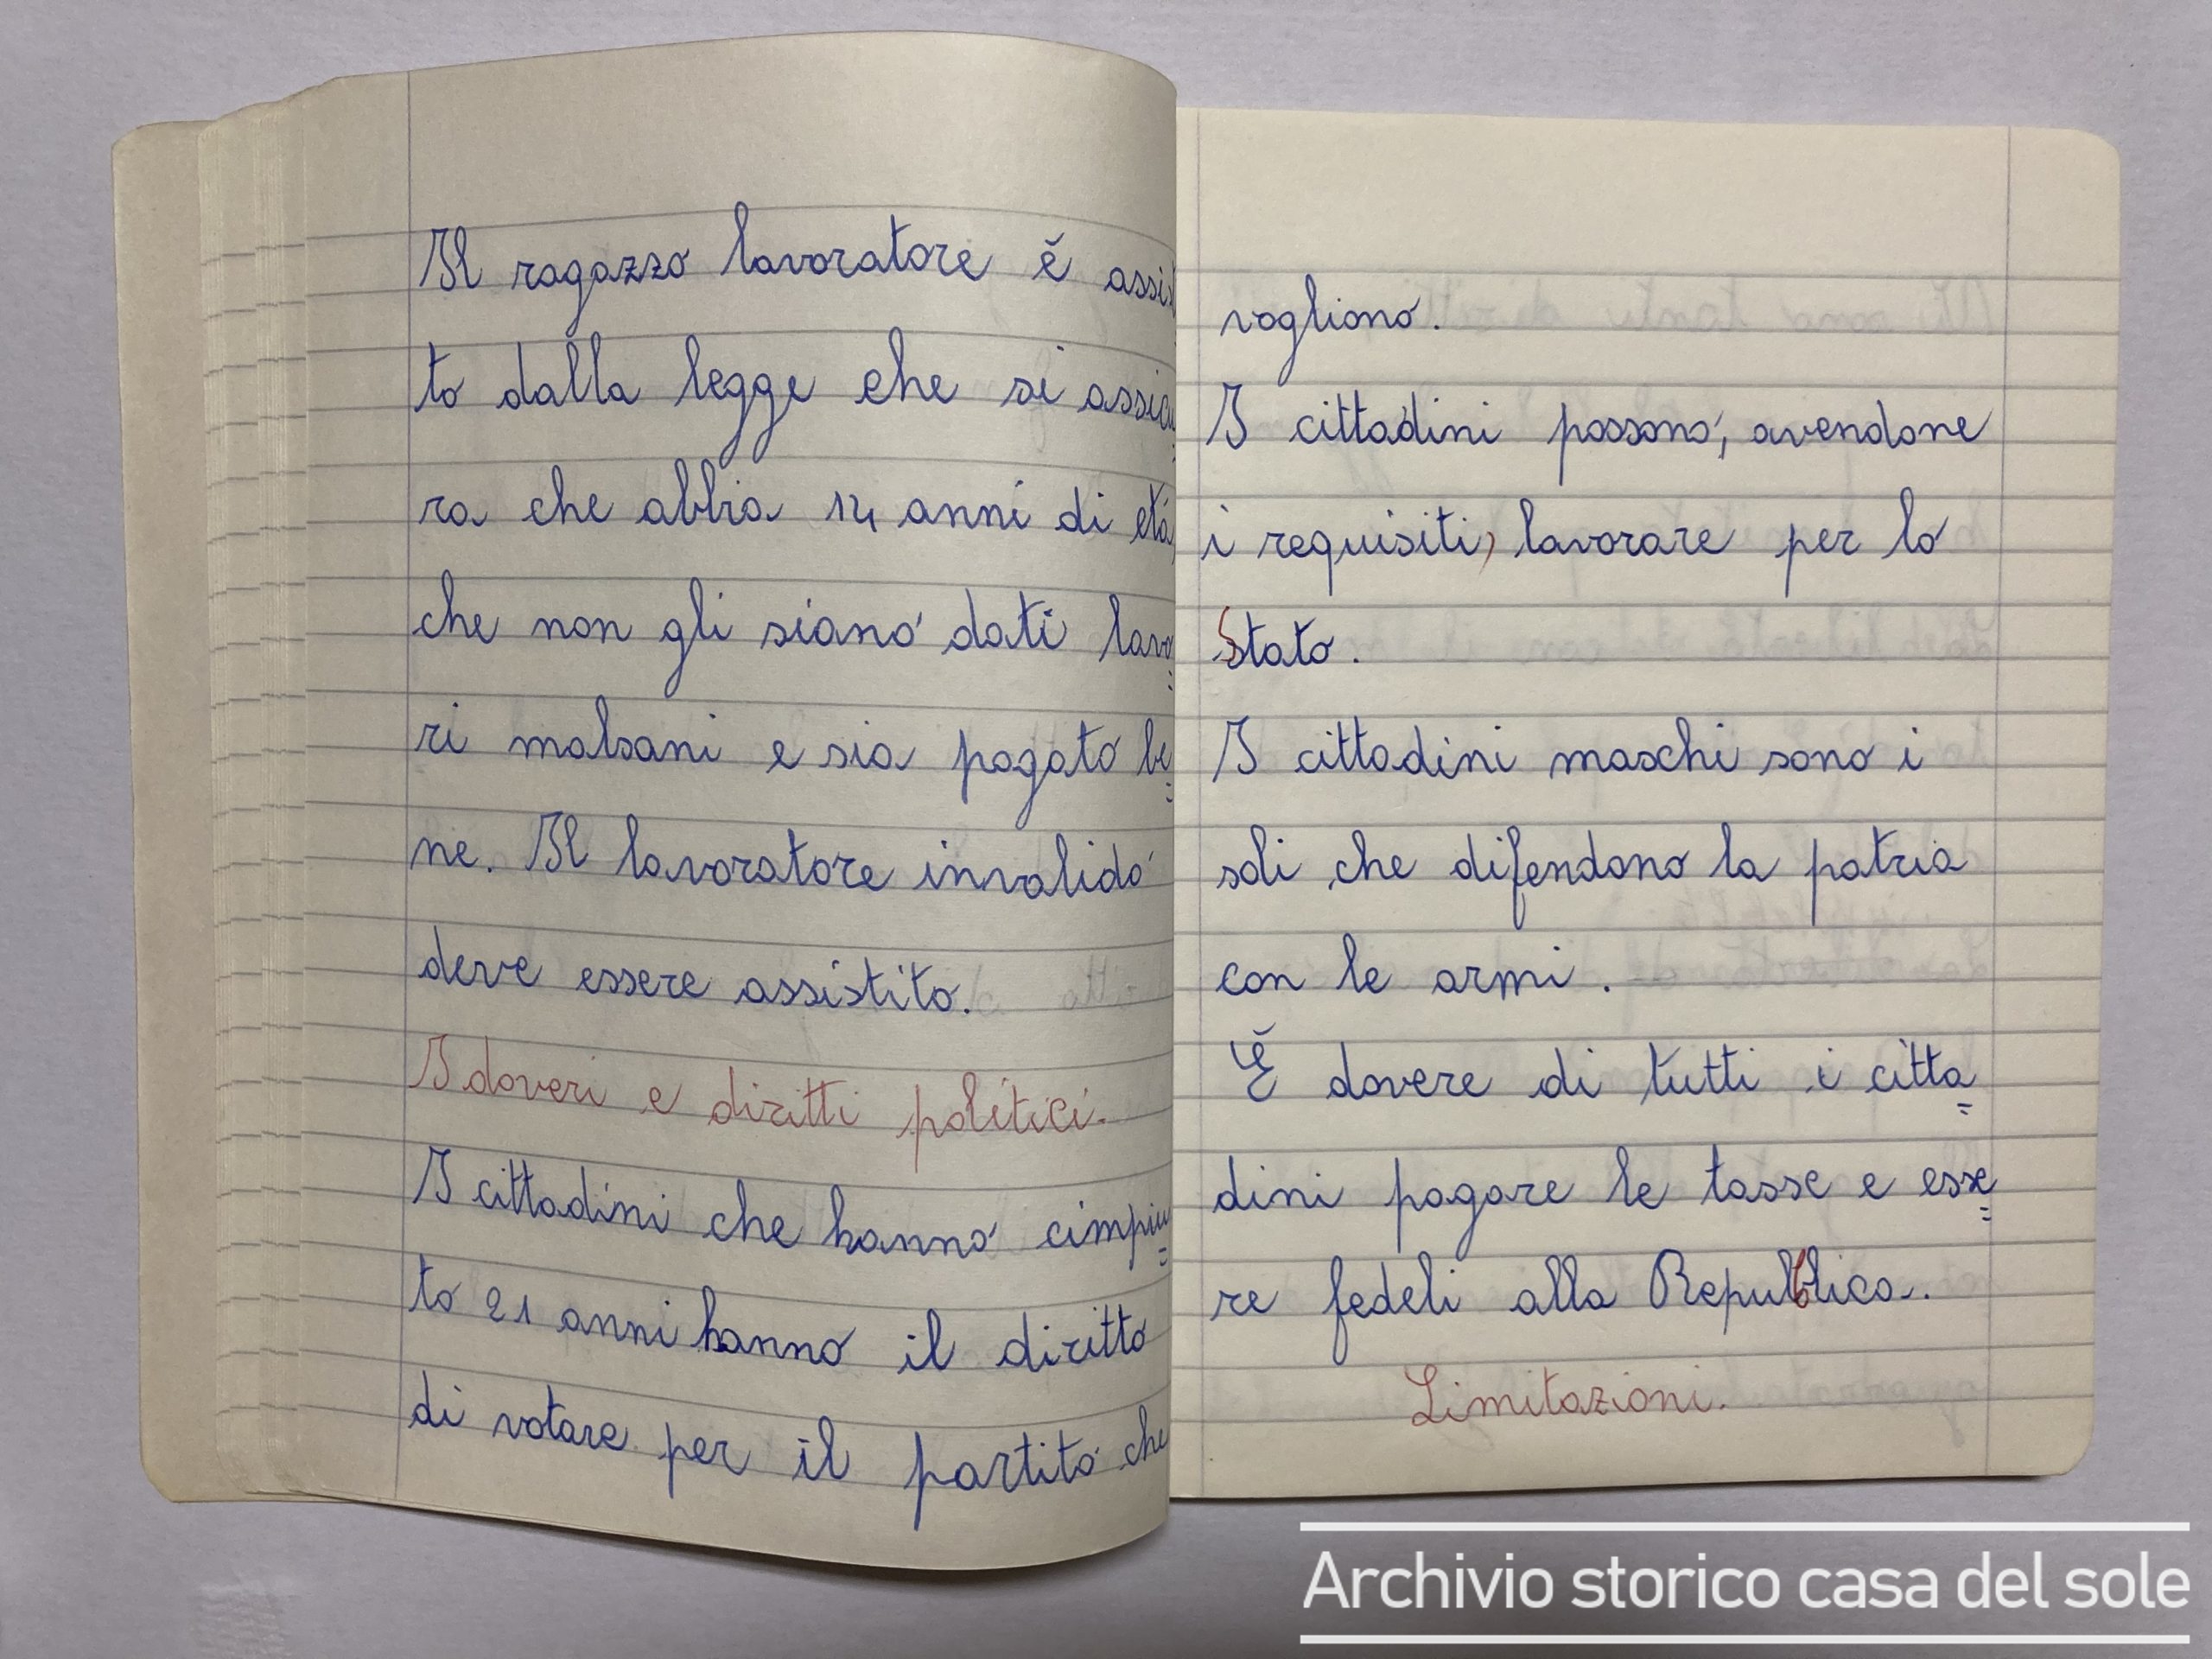 Il ragazzo lavoratore ĕ assist
to dalla legge che si assicu
ra che abbia 14 anni di etá,
che non gli siano dati lavo=
ri malsani e sia pagato be=
ne. Il lavoratore invalido
deve essere assistito.
I doveri e diritti politici.
I cittadini che hanno cimpiu=
to 21 anni hanno il diritto
di votare per il partito che
vogliono.
I cittadini possono, avendone
i requisiti, lavorare per lo
Stato.
I cittadini maschi sono i
soli che difendono la patria
con le armi.
Ĕ dovere di tutti i citta=
dini pagare le tasse e esse=
re fedeli alla Repubblica.
Limitazioni.
Archivio storico casa del sole